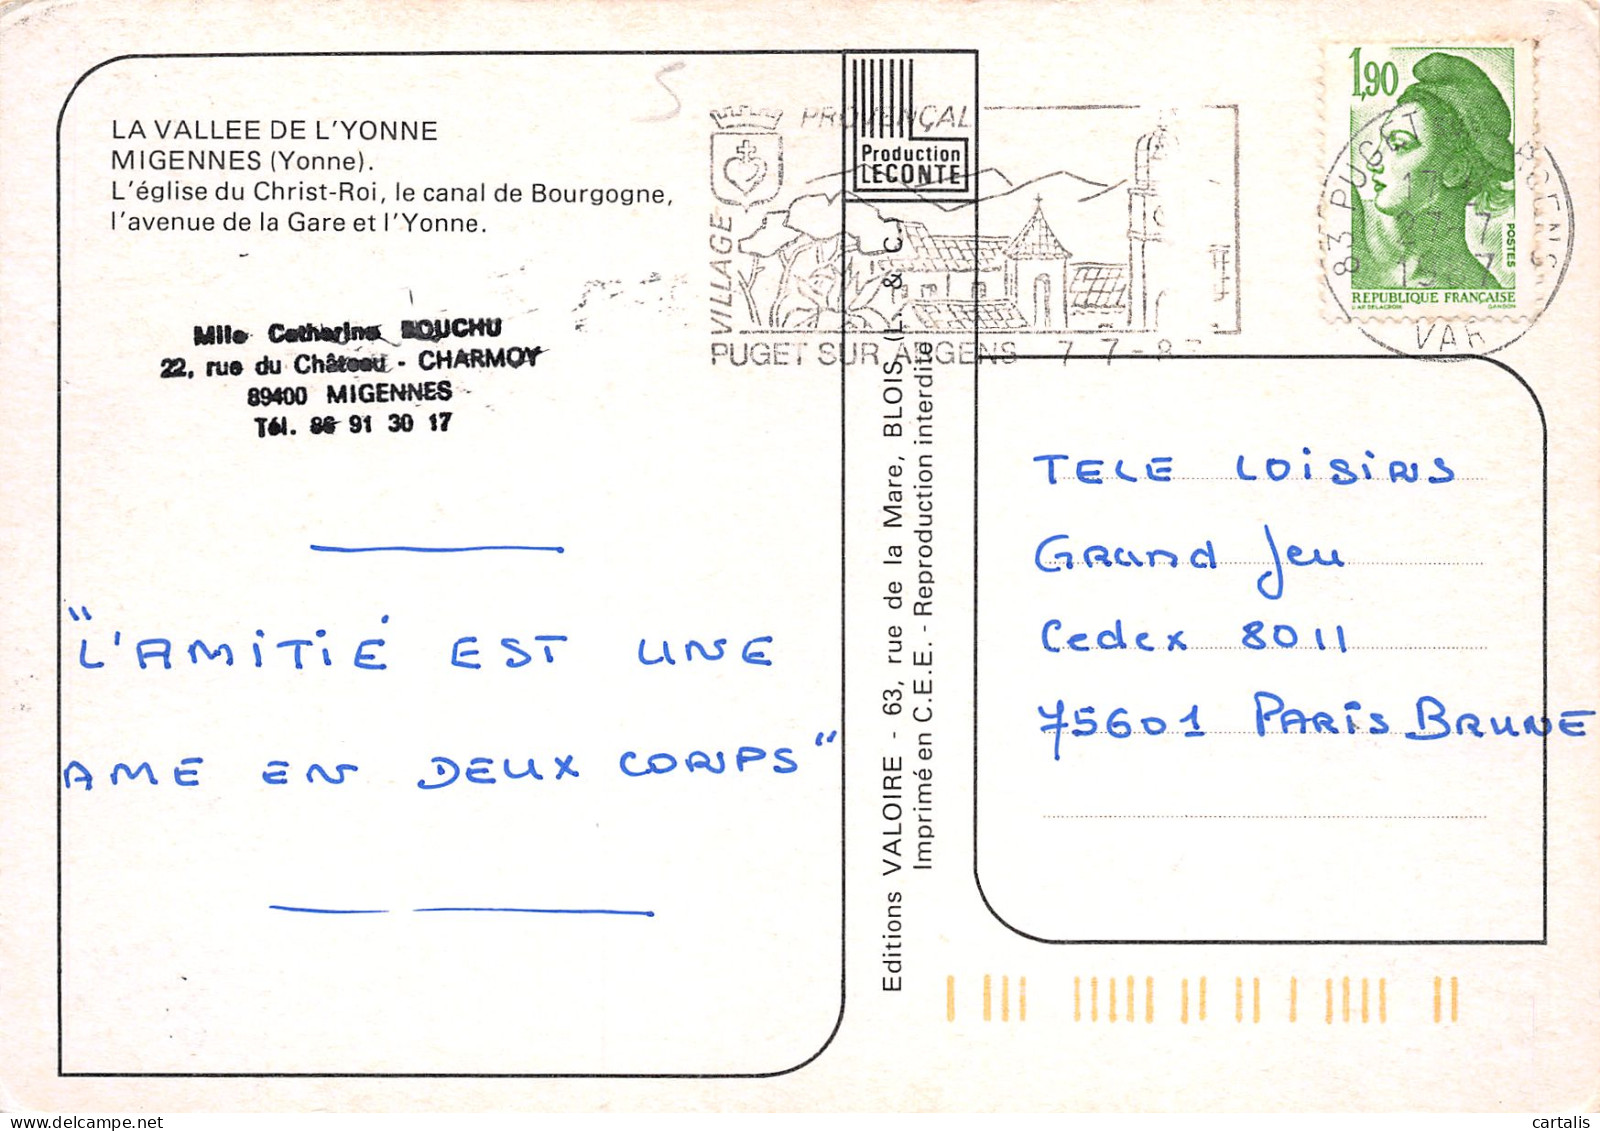 LA VALLEE DE L'YONNE
MIGENNES (Yonne).
L'église du Christ-Roi, le canal de Bourgogne,
l'avenue de la Gare et l'Yonne.
Mlle Catherine BOUCHU
22, rue du Château - CHARMOY
89400 MIGENNES
Tél. 86 91 30 17
"L'AMITIÉ EST UNE
AME EN DEUX CORPS"
VILLAGE
PROVENÇAL
PUGET SUR ARGENS
Production
LECONTE
Editions VALOIRE - 63, rue de la Mare, BLOIS (L. & C.)
Imprimé en C.E.E. - Reproduction interdite
1,90
POSTES
REPUBLIQUE FRANÇAISE
83 PUGET SUR ARGENS
VAR
TELE LOISIRS
Grand Jeu
Cedex 8011
75601 PARIS BRUNE
cartalis